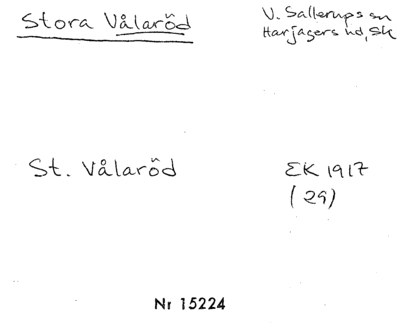 Stora Vålaröd
V. Sallerups sn
Harjagers hd, Sk
St. Vålaröd
EK 1917
(29)
Nr 15224